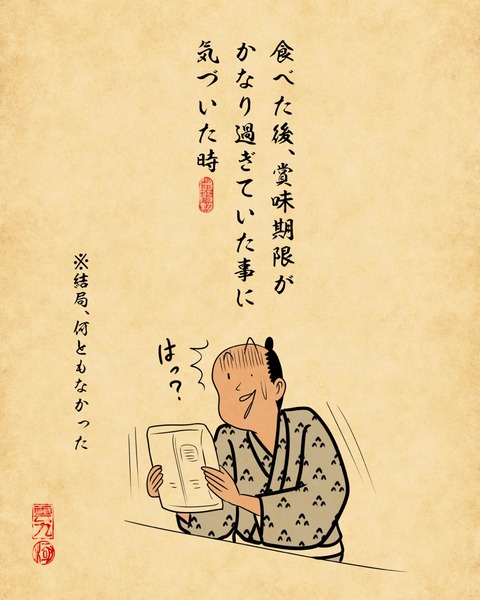 食べた後、賞味期限が
かなり過ぎていた事に
気づいた時
はっ?
※結局、何ともなかった